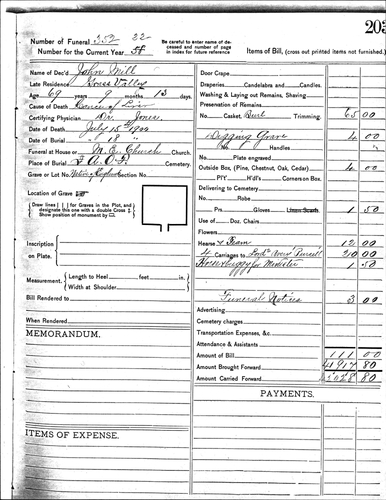 203
Number of Funeral 352 22
Number for the Current Year 58
Be careful to enter name of deceased and number of page in index for future reference
Items of Bill, (cross out printed items not furnished.)
Name of Dec'd John Mill
Late Residence Jones Valley
Age 69 years 9 months 13 days
Cause of Death Cancer of Liver
Certifying Physician Dr. Jones
Date of Death July 15th 1900
Date of Burial " 18 "
Funeral at House or M. E. Church Church.
Place of Burial I. O. O. F. Cemetery.
Grave or Lot No. Section No.
Location of Grave
Draw lines | / for Graves in the Plot, and designate this one with a double Cross
Show position of monument by
Inscription on Plate.
Measurement. Length to Heel feet in.
Width at Shoulder
Bill Rendered to
When Rendered
MEMORANDUM.
ITEMS OF EXPENSE.
Door Crape
Draperies. Candelabra and Candles.
Washing & Laying out Remains, Shaving
Preservation of Remains
No. Casket, Burl Trimming. 65 00
Digging Grave 4 00
No. Handles
No. Plate engraved
Outside Box (Pine, Chestnut, Oak, Cedar) 4 00
P'l'r H'dl's Corners on Box.
Delivering to Cemetery
No. Robe
Prs. Gloves 1 50
Use of Doz. Chairs
Flowers
Hearse & Team 12 00
4 Carriages to 20 00
Horse & buggy for Minister 1 50
Funeral Notices 3 00
Advertising
Cemetery charges
Transportation Expenses, &c.
Attendance & Assistants
Amount of Bill 111 00
Amount Brought Forward 41917 80
Amount Carried Forward 42028 80
PAYMENTS.